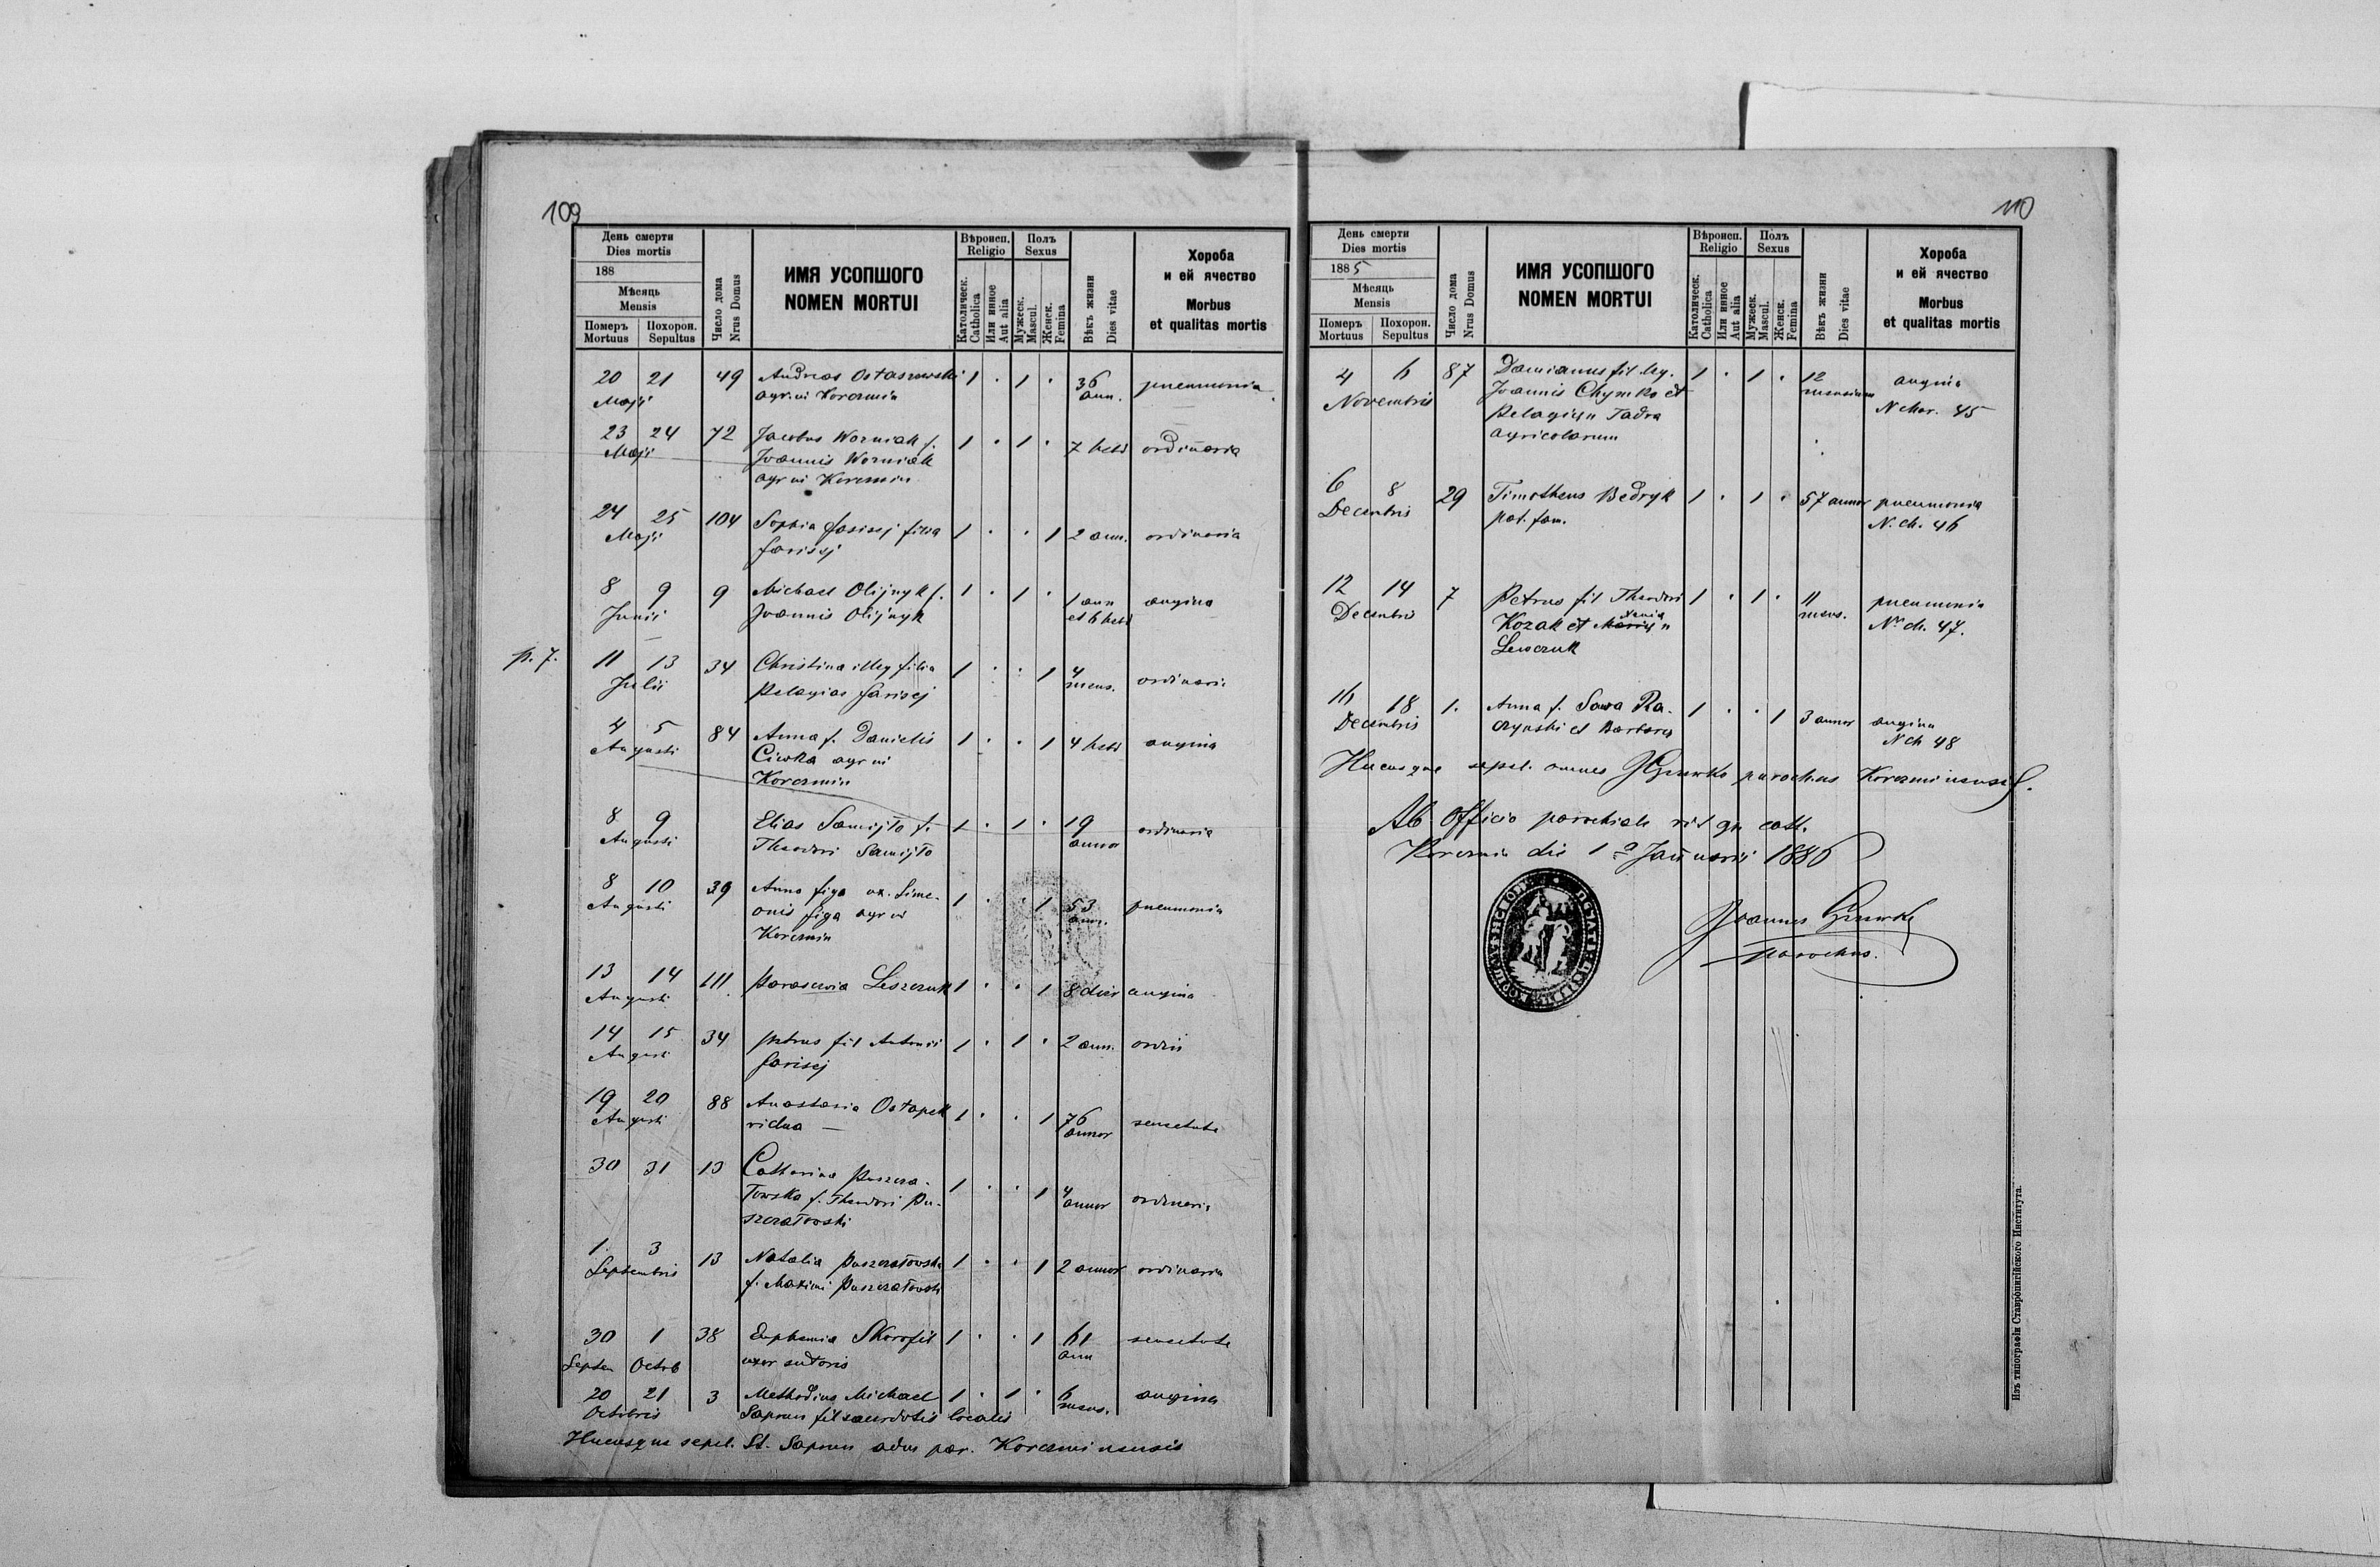 109
День смерти
Dies mortis
188
Мѣсяць
Mensis
Померъ
Mortuus
Похорон.
Sepultus
Число дома
Nrus Domus
ИМЯ УСОПШОГО
NOMEN MORTUI
Вѣроисп.
Religio
Католическ.
Catholica
Или инное
Aut alia
Полъ
Sexus
Мужеск.
Mascul.
Женск.
Femina
Вѣкъ жизни
Dies vitae
Хороба
и ей ячество
Morbus
et qualitas mortis
20 21 49 Andreas Ostaszewski 1 . 1 . 36 pneumonia
Maji agr. in Korczmin ann.
23 24 72 Jacobus Worniak f. 1 . 1 . 7 hebd ordinaria
Maji Joannis Worniak
agr in Korczmin
24 25 104 Sophia farisej filia 1 . . 1 2 ann. ordinaria
Maji farisej
8 9 9 Michael Olijnyk f. 1 . 1 . 1 ann angina
Junii Joannis Olijnyk et 6 hebd
p. 7.
11 13 34 Christina illeg filia 1 . . 1 4 ordinaria
Julii Pelagiae farisej mens.
4 5 84 Anna f. Danielis 1 . . 1 4 hebd angina
Augusti Ciwka agr in
Korczmin
8 9 Elias Samijło f. 1 . 1 . 19 ordinaria
Augusti Theodori Samijło annor
8 10 39 Anna figa ux. Sime-
Augusti onis figa agr in 1 . . 1 53 pneumonia
Korczmin ann.
13 14 111 Parascevia Leszczuk 1 . . 1 8 dier angina
Augusti
14 15 34 Petrus fil Antonii 1 . 1 . 2 ann. ordin
Augusti farisej
19 20 88 Anastasia Ostapek 1 . . 1 76 senectute
Augusti vidua annor
30 31 13 Catharina Puszcza-
łowska f. Theodori Pu- 1 . . 1 4 annor ordinaria
szczałowski
1 3 13 Natalia Puszczałowska 1 . . 1 2 annor ordinaria
Septembris f. Maximi Puszczałowski
30 1 38 Euphemia Skorofit 1 . . 1 61 senectute
Septem Octob uxor sutoris ann
20 21 3 Methodius Michael 1 . 1 . 6 angina
Octobris Saprun fil sacerdotis localis mens.
Hucusque sepel. St. Saprun adm par. Korczminensis
110
День смерти
Dies mortis
1885
Мѣсяць
Mensis
Померъ
Mortuus
Похорон.
Sepultus
Число дома
Nrus Domus
ИМЯ УСОПШОГО
NOMEN MORTUI
Вѣроисп.
Religio
Католическ.
Catholica
Или инное
Aut alia
Полъ
Sexus
Мужеск.
Mascul.
Женск.
Femina
Вѣкъ жизни
Dies vitae
Хороба
и ей ячество
Morbus
et qualitas mortis
4 6 87 Damianus fil leg. 1 . 1 . 12 angina
Novembris Joannis Chymko et mensium N char. 45
Pelagiae n Tadra
agricolarum
6 8 29 Timotheus Bedryk 1 . 1 . 57 annor pneumonia
Decembris pat. fam. N. ch. 46
12 14 7 Petrus fil Theodori 1 . 1 . 11 pneumonia
Decembris Kozak et n mens. Nr ch. 47.
Lewczuk
16 18 1. Anna f. Sawa Ra- 1 . . 1 3 annor angina
Decembris czynski et Barbara N ch 48
Hucusque sepel. omnes parochus Korczminensis
Ab Officio parochiali rit gr cath.
Korczmin die 1a Januarii 1886
Joannes
parochus.
Изъ типографіи Ставропигійского Института.